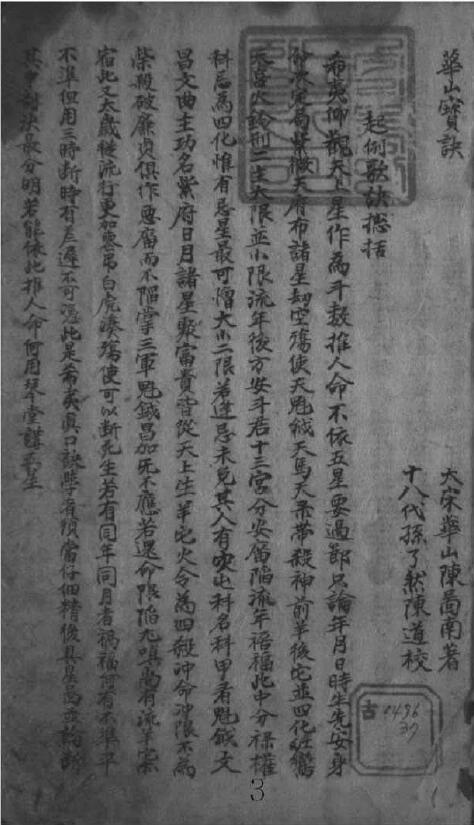 華山寶訣
大宋華山陳啚南著
十八代孫了然陳道校
起例歌訣揔括
希夷仰觀天上星作為斗数推人命不依五星要過節只論年月日時生先安身
命次定局紫微天府布諸星劫空殤使天魁鉞天馬天祿帶殺神前羊後它並四化紅鸞
天喜次論刑二主大限並小限流年後方安斗君十三宮分安廟陷流年禍福此中分祿權
科忌為四化惟有忌星最可憎大小二限若逢忌未免其人有突屯科名科甲看魁鉞文
昌文曲主功名紫府日月諸星聚富貴皆從天上生羊它火令為四殺冲命冲限不為
柴殺破廉貞俱作惡廟而不陷掌三軍魁鉞昌加死不應若還命限陷尤嗔尚有流羊
宿此又太歲從流行更加喪吊白虎湊殤使可以断死生若有同年同月者禍福何有不準平
不準但用三時断時有差遲不可憑此是希夷眞口訣學者須當仔細精後具星啚並論断
其中剖決最分明若能依此推人命何用琴堂講五生
古
1496
37
3